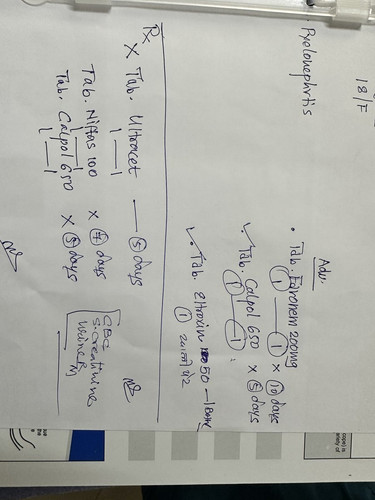 18/F
Pyelonephritis
Adv.
• Tab. Faronem 200mg
1 — 1 x 10 days
✓ Tab. Calpol 650 x 5 days
1 — 1
✓ Tab. Eltroxin 50 — 1 BBF
1
Rx
X Tab. Ultracet — 5 days
1 — 1
Tab. Niftas 100 x 7 days
1 — 1
Tab. Calpol 650 x 5 days
1 — 1
CBC
S. creatinine
Urine R